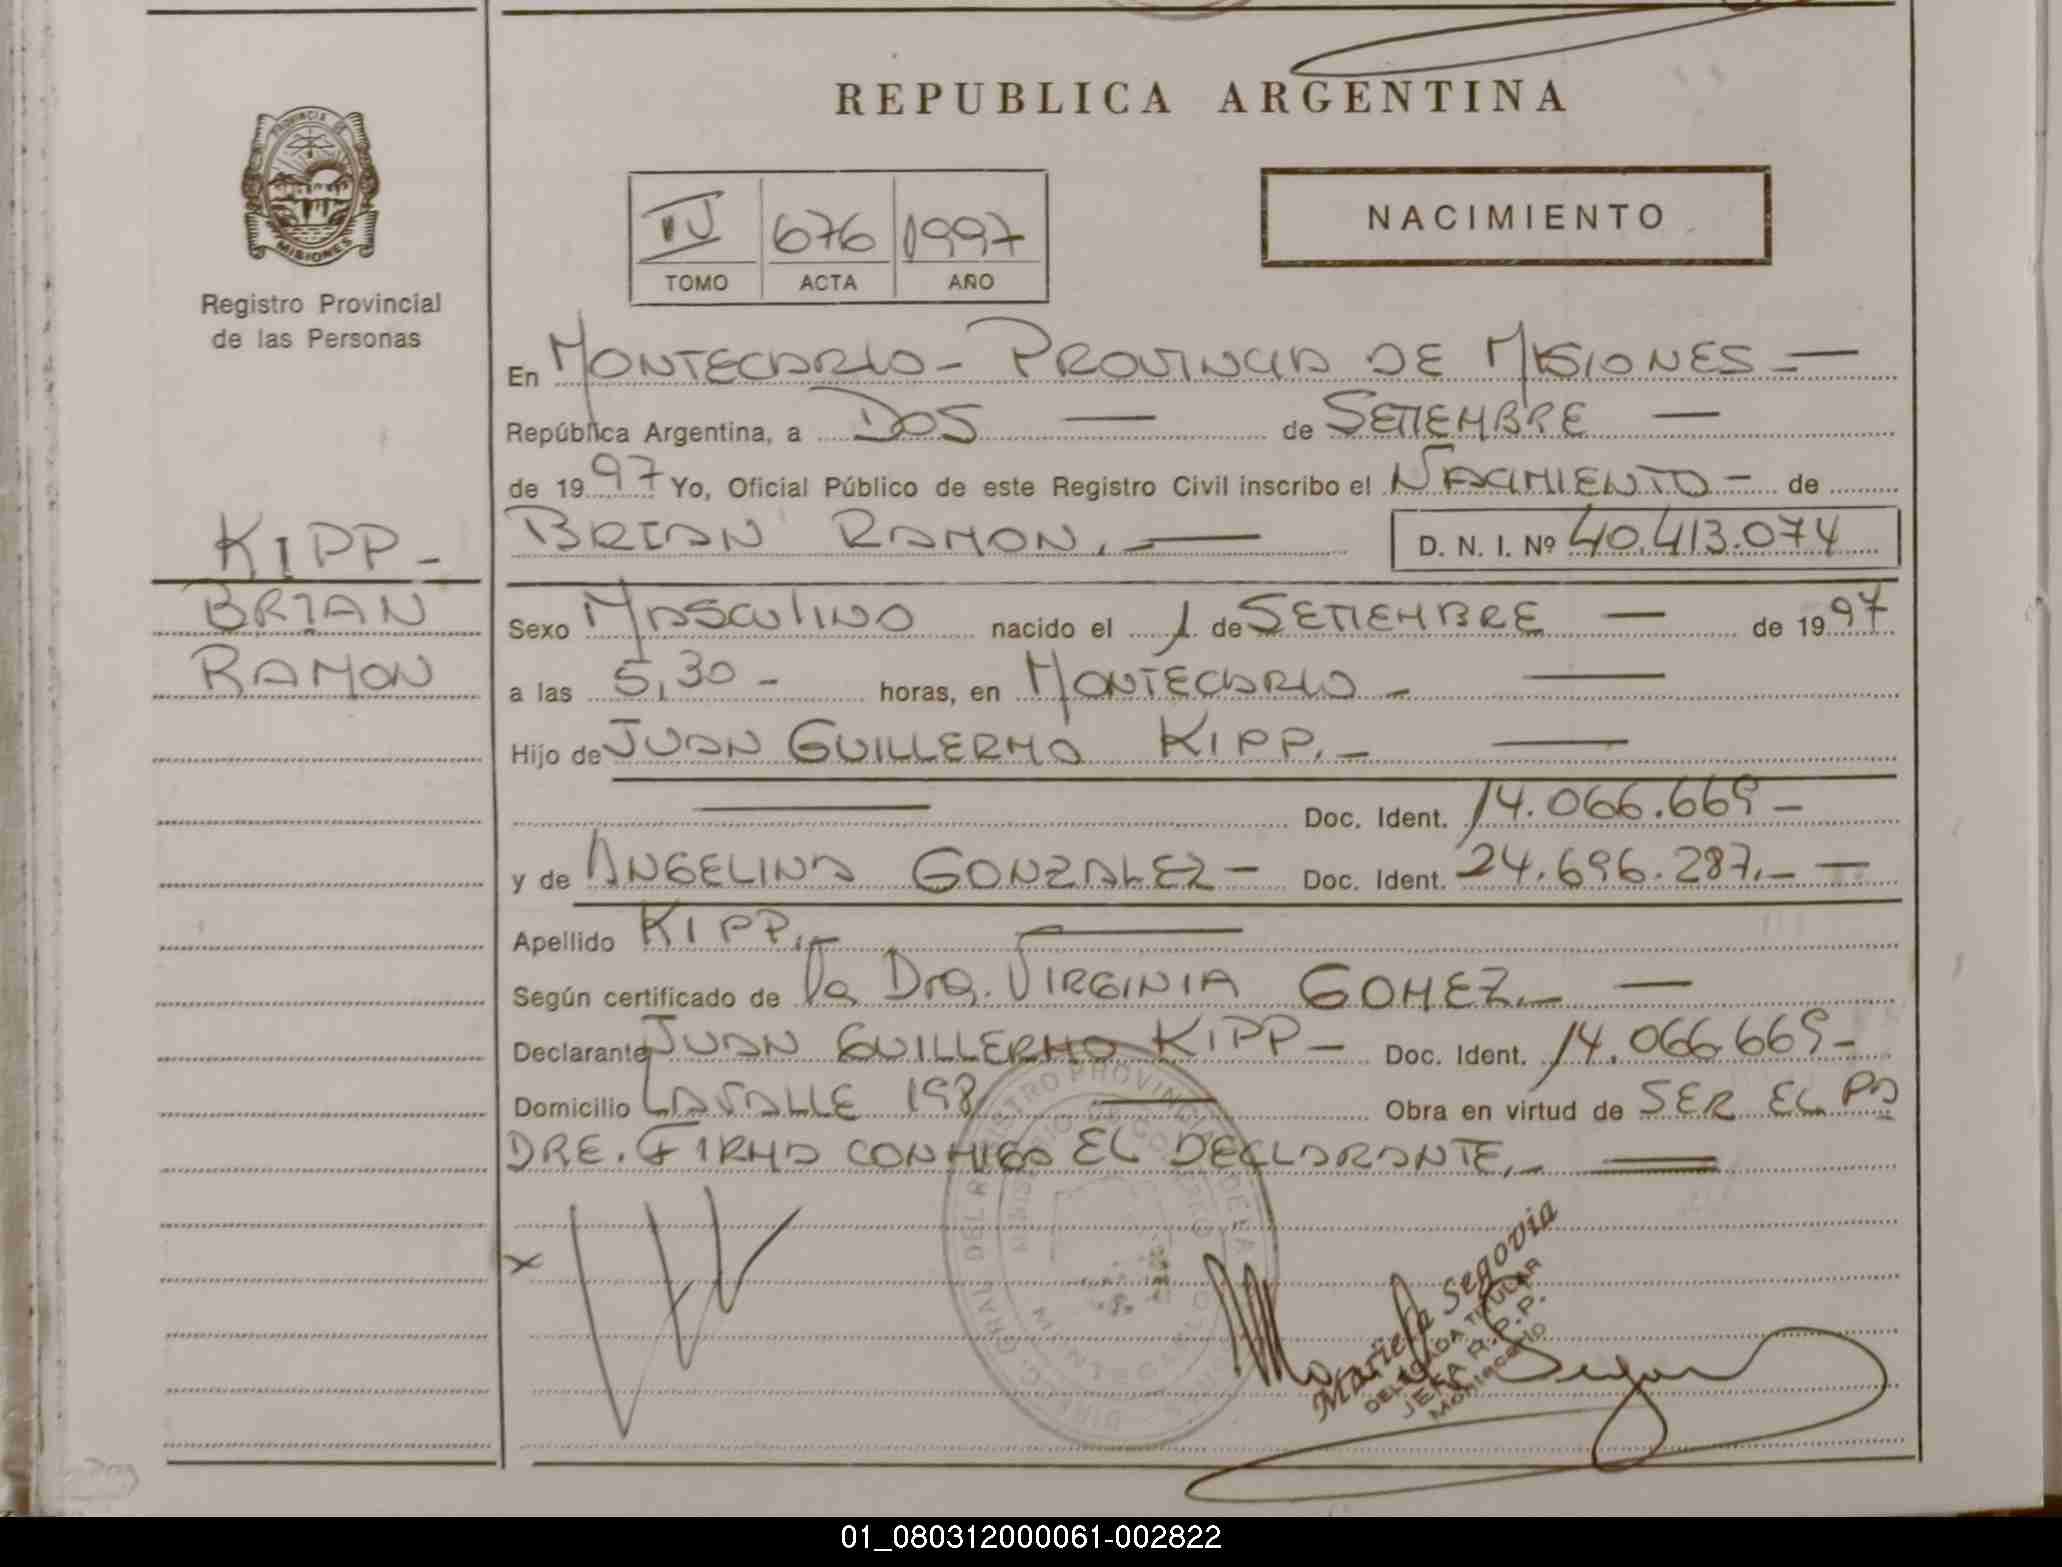 REPUBLICA ARGENTINA
PROVINCIA DE
MISIONES
Registro Provincial
de las Personas
IV 676 1997
TOMO ACTA AÑO
NACIMIENTO
En MONTECARLO - PROVINCIA DE MISIONES -
República Argentina, a DOS — de SETIEMBRE —
de 1997 Yo, Oficial Público de este Registro Civil inscribo el NACIMIENTO - de
KIPP -
BRIAN RAMON. — D. N. I. Nº 40.413.074
BRIAN
Sexo MASCULINO nacido el 1 de SETIEMBRE — de 1997
RAMON
a las 5,30 - horas, en MONTECARLO - —
Hijo de JUAN GUILLERMO KIPP. - —
— Doc. Ident. 14.066.669 -
y de ANGELINA GONZALEZ - Doc. Ident. 24.696.287. - —
Apellido KIPP. - —
Según certificado de la Dra. VIRGINIA GOMEZ. - —
Declarante JUAN GUILLERMO KIPP - Doc. Ident. 14.066.669 -
Domicilio LAVALLE 198 — Obra en virtud de SER EL PA
DRE. FIRMA CONMIGO EL DECLARANTE. - —
x
Mariela Segovia
DELEGADA TITULAR
JEFA R.P.P.
Montecarlo
01_080312000061-002822